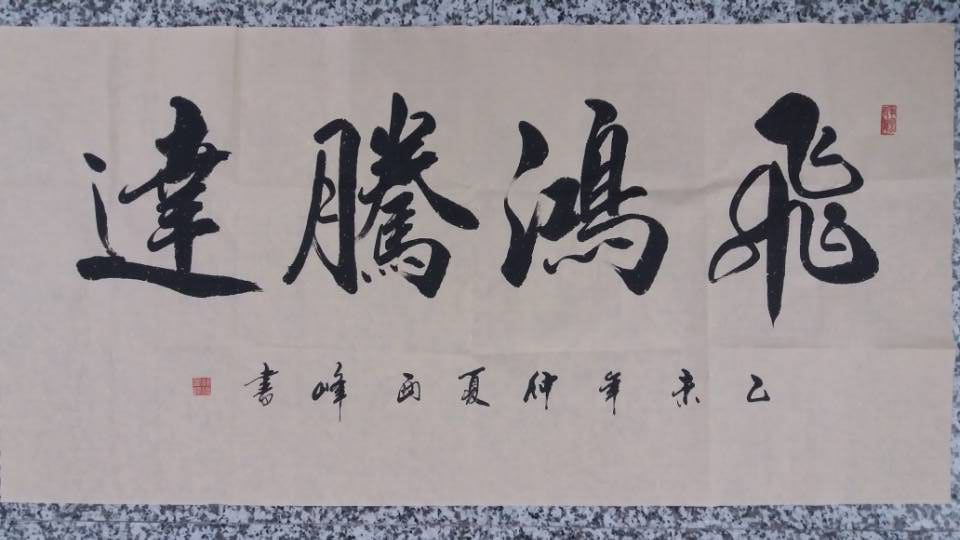 飛鴻騰達
乙未年仲夏西峰書